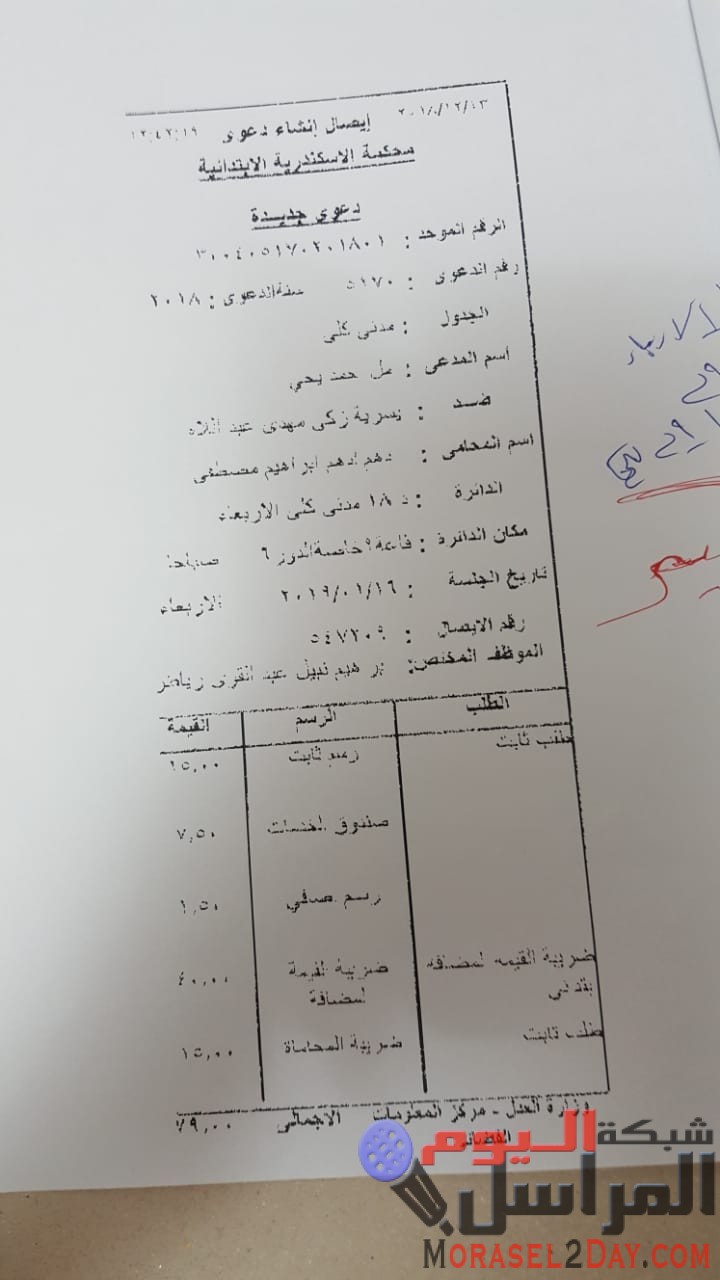 إيصال إنشاء دعوى ١٢:٤٢:١٩
محكمة الاسكندرية الابتدائية
دعوى جديدة
الرقم الموحد : ٣٠٠٤٠٥١٧٠٢٠١٨٠١
رقم الدعوى : ٥١٧٠ سنة الدعوى : ٢٠١٨
الجدول : مدنى كلى
اسم المدعى : حمد يحي
ضد : يسرية زكى مهدى عبد
اسم المحامى : ابراهيم مصطفى
الدائرة : د ١٨ مدنى كلى الاربعاء
مكان الدائرة : قاعة ٩ خاصة الدور ٦ صباحا
تاريخ الجلسة : ٢٠١٩/٠١/١٦ الاربعاء
رقم الايصال : ٥٤٧٢٠٩
الموظف المختص: نبيل عبد القوى رياض
الطلب الرسم القيمة
طلب ثابت رسم ثابت ١٥,٠٠
صندوق الخدمات ٧,٥٠
رسم ١,٥٠
ضريبة القيمه المضافه ضريبة القيمة ٤٠,٠٠
المضافة
طلب ثابت ضريبة المحاماة ١٥,٠٠
وزارة العدل - مركز المعلومات الاجمالى ٧٩,٠٠
القضائى
الاربعاء
شبكة اليوم
المراسل
MORASEL2DAY.COM